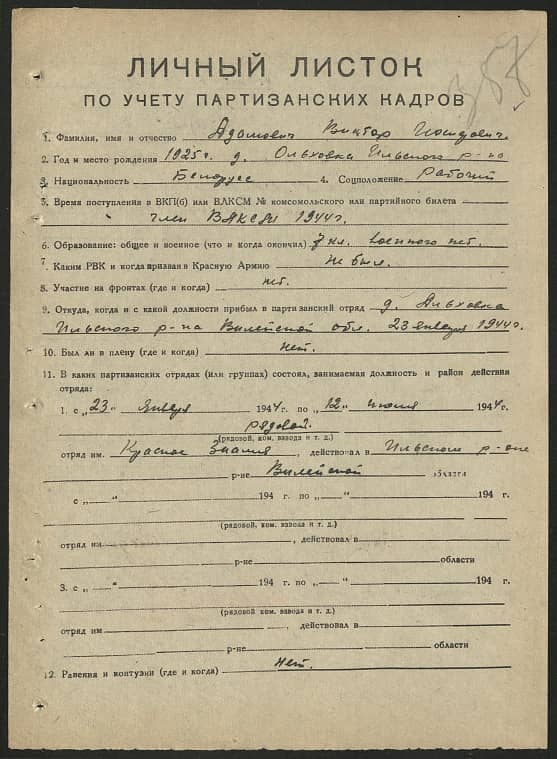 358
ЛИЧНЫЙ ЛИСТОК
ПО УЧЕТУ ПАРТИЗАНСКИХ КАДРОВ
1. Фамилия, имя и отчество Адамович Виктор Иосифович.
2. Год и место рождения 1925 г. д. Ольховка Ильского р-на
3. Национальность Белорусс 4. Соцположение Рабочий
5. Время поступления в ВКП(б) или ВЛКСМ № комсомольского или партийного билета
член ВЛКСМ 1944 г.
6. Образование: общее и военное (что и когда окончил) 7 кл. военного нет.
7. Каким РВК и когда призван в Красную Армию Не был.
8. Участие на фронтах (где и когда) нет.
9. Откуда, когда и с какой должности прибыл в партизанский отряд д. Альховка
Ильского р-на Вилейской обл. 23 января 1944 г.
10. Был ли в плену (где и когда) Нет.
11. В каких партизанских отрядах (или группах) состоял, занимаемая должность и район действия
отряда:
1. с „23" января 1944 г. по „12" июля 1944 г.
рядовой.
(рядовой, ком. взвода и т. д.)
отряд им. Красное Знамя, действовал в Ильском р-оне
р-не Вилейской области
с „ " 194 г. по „ " 194 г.
(рядовой, ком. взвода и т. д.)
отряд им. , действовал в
р-не области
3. с „ " 194 г. по „ " 194 г.
(рядовой, ком. взвода и т. д.)
отряд им , действовал в
р-не области
12. Ранения и контузии (где и когда) Нет.